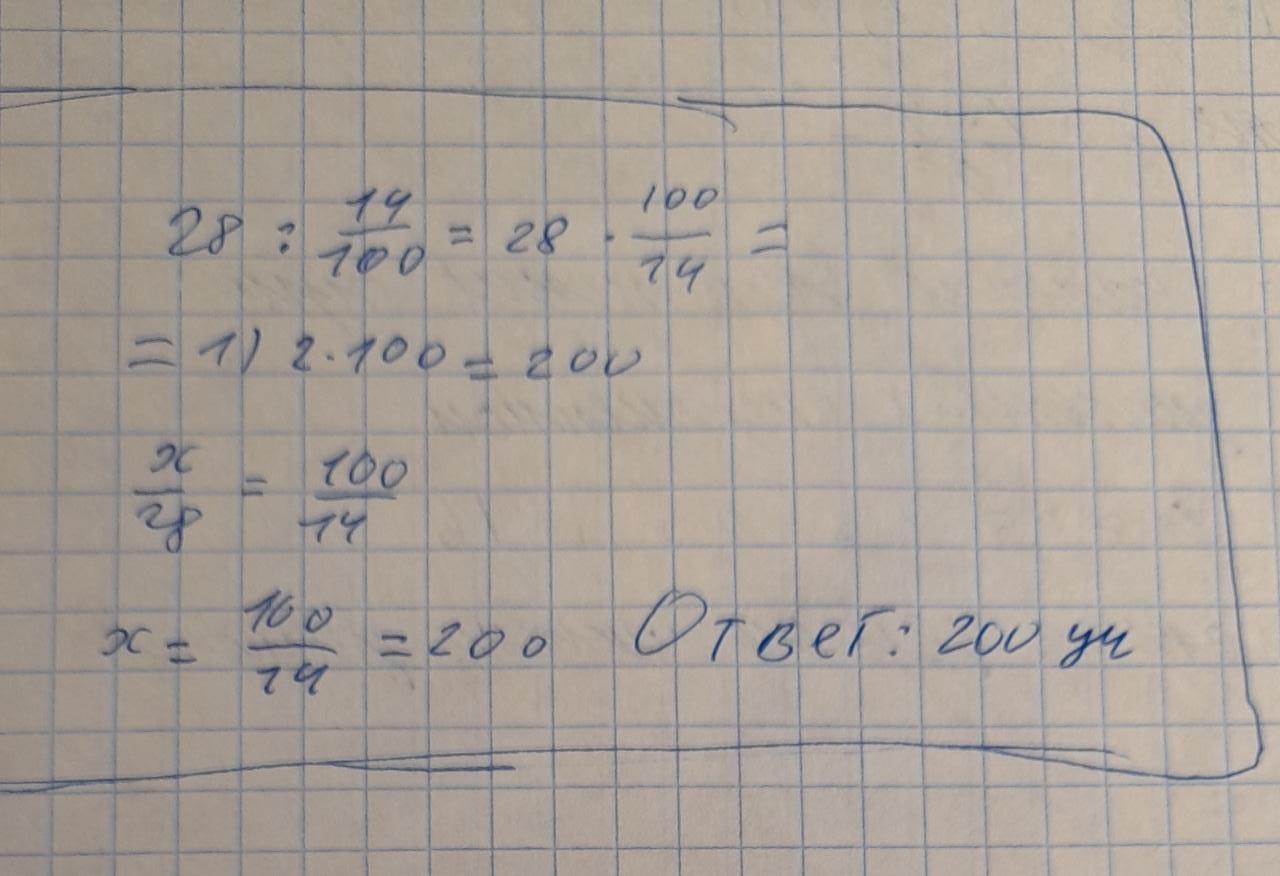 28 : 14/100 = 28 · 100/14 =
= 1) 2 · 100 = 200
x/28 = 100/14
x = 100/14 = 200 Ответ: 200 уч